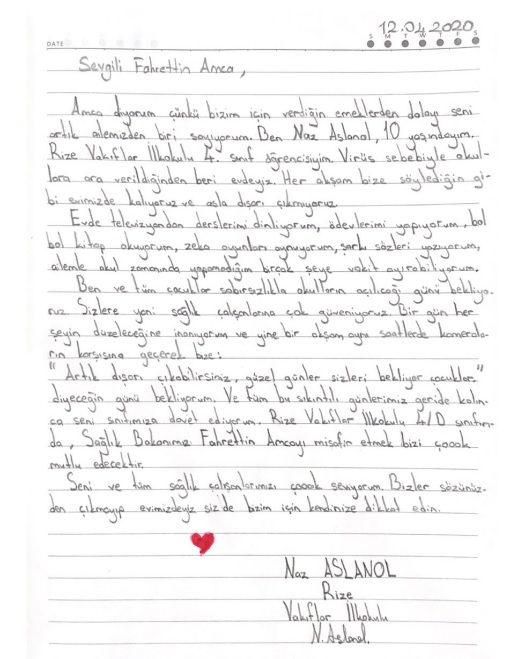 12.04.2020
DATE
S M T W T F S
Sevgili Fahrettin Amca,
Amca diyorum çünkü bizim için verdiğin emeklerden dolayı seni
artık ailemizden biri sayıyorum. Ben Naz Aslanol, 10 yaşındayım.
Rize Vakıflar İlkokulu 4. sınıf öğrencisiyim. Virüs sebebiyle okul-
lara ara verildiğinden beri evdeyiz. Her akşam bize söylediğin gi-
bi evimizde kalıyoruz ve asla dışarı çıkmıyoruz.
Evde televizyondan derslerimi dinliyorum, ödevlerimi yapıyorum, bol
bol kitap okuyorum, zeka oyunları oynuyorum, şarkı sözleri yazıyorum,
ailemle okul zamanında yapamadığım birçok şeye vakit ayırabiliyorum.
Ben ve tüm çocuklar sabırsızlıkla okulların açılıcağı günü bekliyo-
ruz. Sizlere yani sağlık çalışanlarına çok güveniyoruz. Bir gün her
şeyin düzeleceğine inanıyorum ve yine bir akşam aynı saatlerde kamerala-
rın karşısına geçerek bize:
"Artık dışarı çıkabilirsiniz, güzel günler sizleri bekliyor çocuklar."
diyeceğin günü bekliyorum. Ve tüm bu sıkıntılı günlerimiz geride kalın-
ca seni sınıfımıza davet ediyorum. Rize Vakıflar İlkokulu 4/D sınıfın-
da, Sağlık Bakanımız Fahrettin Amcayı misafir etmek bizi çoook
mutlu edecektir.
Seni ve tüm sağlık çalışanlarımızı çoook seviyorum. Bizler sözünüz-
den çıkmayıp evimizdeyiz siz de bizim için kendinize dikkat edin.
Naz ASLANOL
Rize
Vakıflar İlkokulu
N.Aslanol.